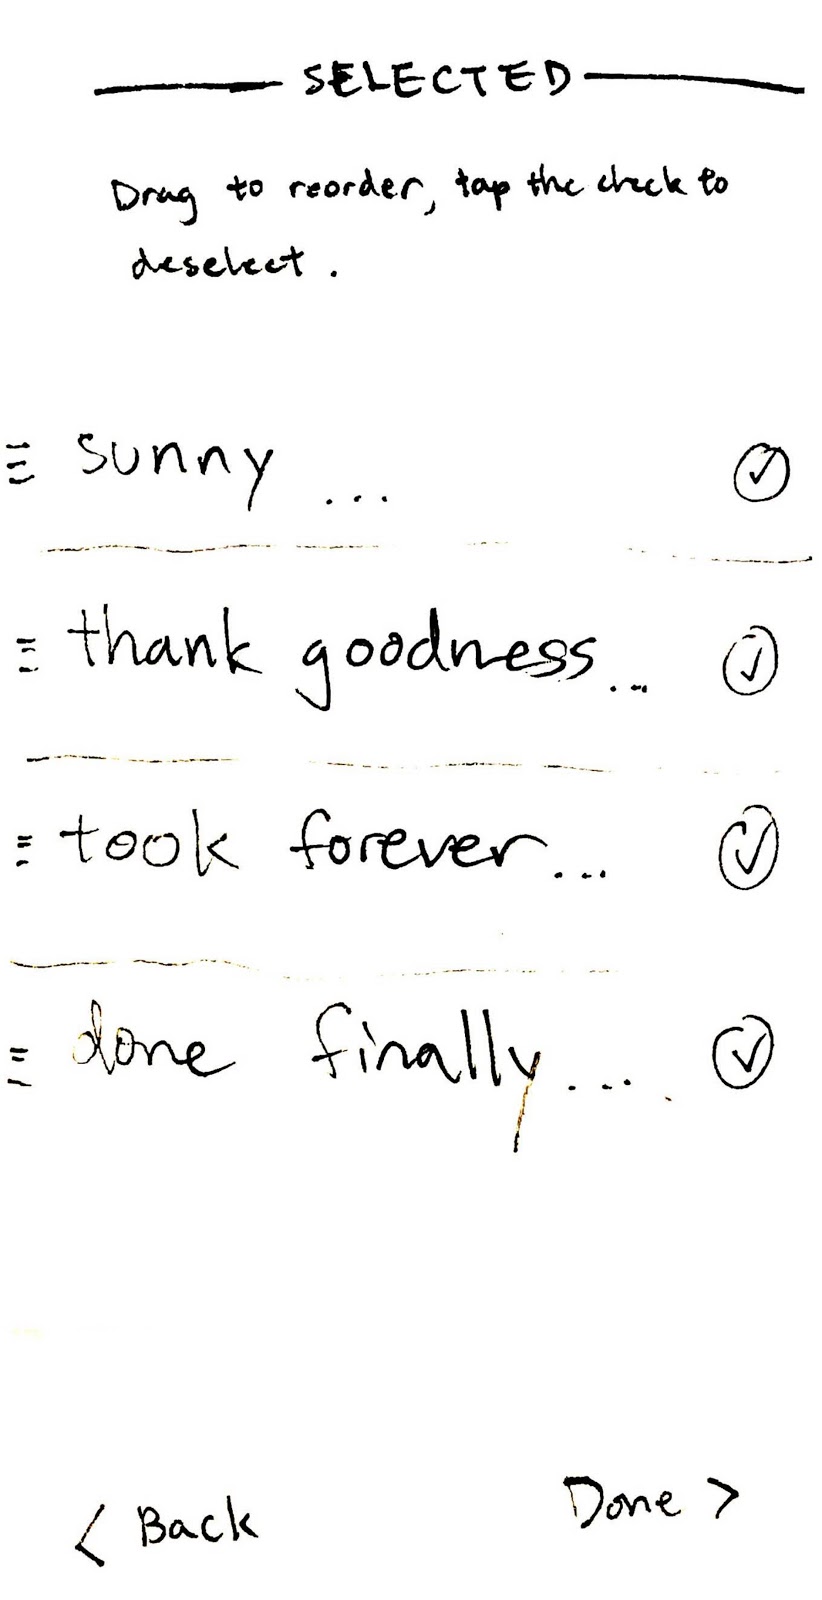 SELECTED
Drag to reorder, tap the check to
deselect.
sunny ...
thank goodness...
took forever...
done finally....
< Back
Done >